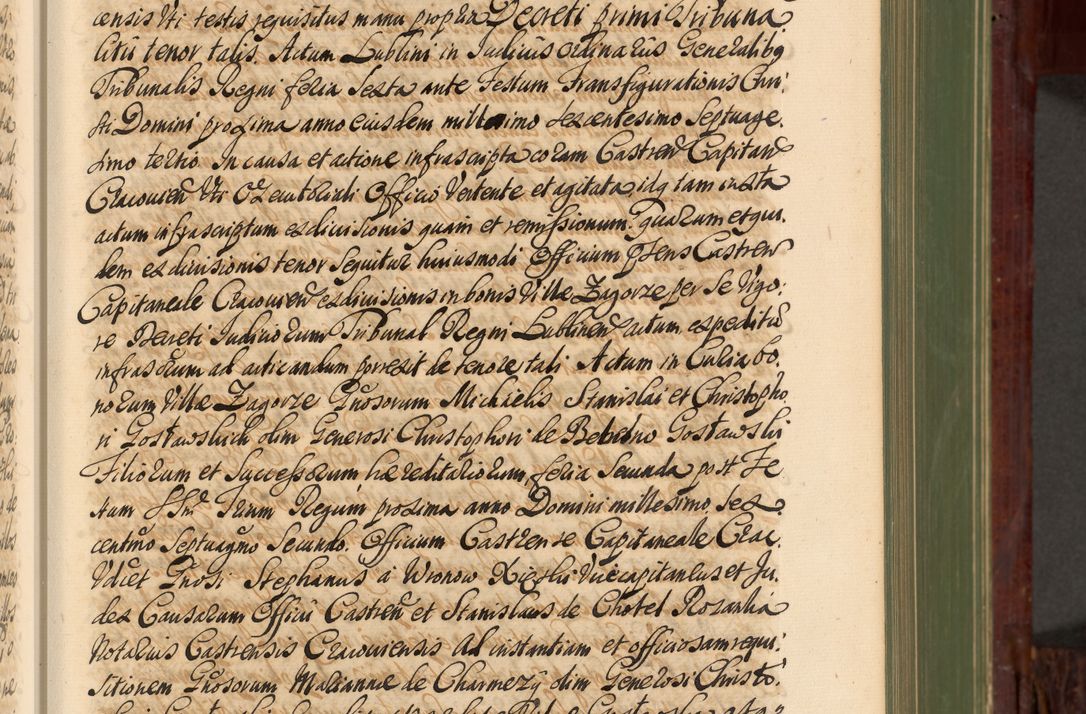 censis Uti testis requisitus manu propria Decreti primi Tribuna
litii tenor talis. Actum Lublini in Iudiciis ordinariis Generalibq
Tribunalis Regni feria Sexta ante Festum Transfigurationis Chri:
sti Domini proxima anno eiusdem millesimo sexcentesimo Septuage.
simo tertio. In causa et actione infrascripta coram Castren Capitan
Cracovien Uti Executoriali Officio Vertente et agitata idq tam iuxta
actum infrascriptum exdivisionis quam et remissionum. quarum et qui.
dem exdivisionis tenor Sequitur huiusmodi Officium psens Castren
Capitaneale Cracovien exdivisionis in bonis Villæ Zagorze per Se Vigo:
re Decreti Iudiciorum Tribunal Regni Lublinen actum expeditu
infrascrum ad acticandum porrexit de tenore tali Actum in Curia bo.
norum Villæ Zagorze Gnosorum Michaelis Stanislai et Christopho
ri Gosławskich olim Generosi Christophori de Bebelno Gosławski
Filiorum et Successorum hæreditariorum, feria Secunda post Fe
stum SStu Trium Regum proxima anno Domini millesimo, sex
centmo Septuagmo Secundo. Officium Castrense Capitaneale Crac.
Udiet Gnosi Stephanus à Wronow Xięski Vicecapitaneus et Ju.
dex Causarum Officii Castren et Stanislaus de Chotel Rozanka
Notarius Castrensis Cracoviensis Ad instantiam et officiosam requi:
sitionem Gnosorum Mariannæ de Charmezÿ olim Generosi Christo: